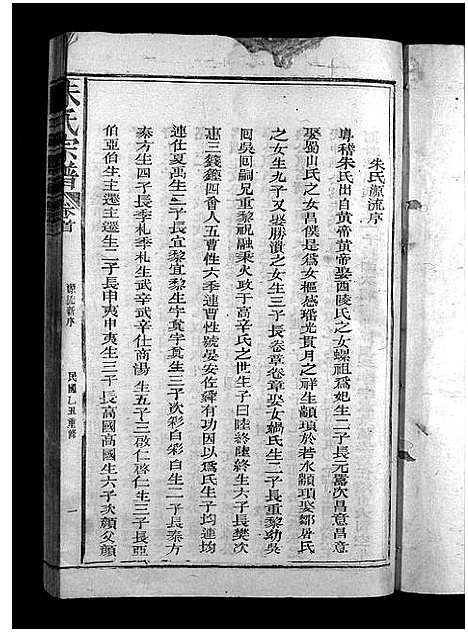 朱氏源流序
粵稽朱氏出自黃帝黃帝娶西陵氏之女嫘祖為妃生二子長元囂次昌意昌意
娶蜀山氏之女昌僕是為女樞感瑤光貫月之祥生顓頊於若水顓頊娶鄒屠氏
之女生九子又娶勝濆之女生三子長卷章卷章娶女媧氏生二子長重黎幼吳
回吳回嗣兄重黎祝融秉火政于高辛氏之世生子曰陸終陸終生六子長樊次
惠三錢鏗四會人五曹性六季連曹性號晏安佐緯有功因以為氏生子均連均
連仕夏禹生三子長宜黎宜黎生字真字真生三子次彩白彩白生二子長泰方
泰方生四子長季札季札生武辛武辛仕商湯生五子三啟仁啟仁生三子長亞
伯亞伯生主遷主遷生二子長申夷申夷生三子長高國高國生六子次顏父顏
朱氏宗譜
卷首
源流新序
民國乙丑重修
一